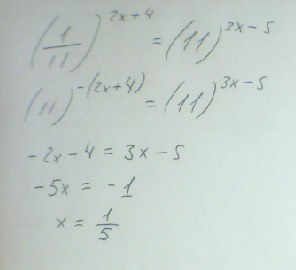 (1/11)^2x+4 = (11)^3x-5
(11)^-(2x+4) = (11)^3x-5
-2x-4 = 3x-5
-5x = -1
x = 1/5